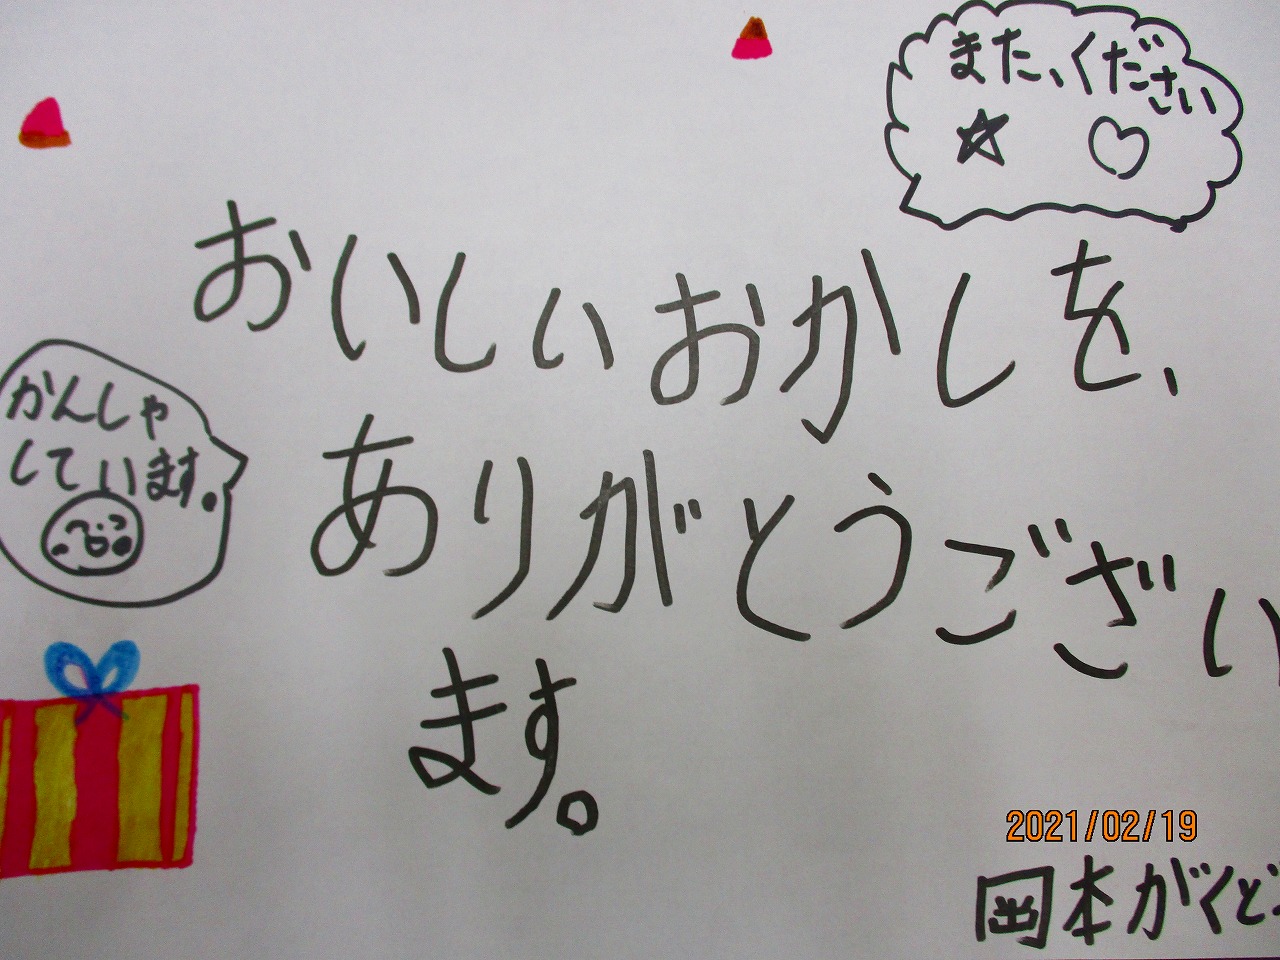 また、ください
おいしいおかしを、
かんしゃ
しています。
ありがとうござい
ます。
2021/02/19
岡本がくど